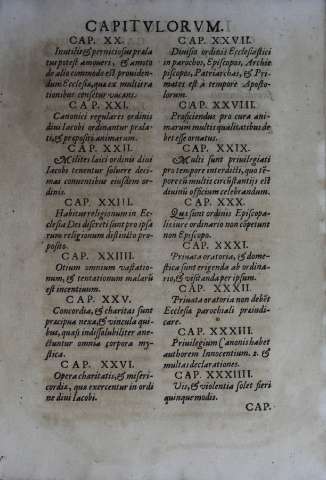 CAPITVLORVM.
CAP. XX.
Inutilis & perniciosus præla
tus potest amoueri, & amoto
de alio commode est prouiden-
dum Ecclesiæ, quæ ex multis ra
tionibus censetur vacans.
CAP. XXI.
Canonici regulares ordinis
diui Iacobi ordinantur præla-
ti, & præpositi animarum.
CAP. XXII.
Milites laici ordinis diui
Iacobi tenentur soluere deci-
mas conuentibus eiusdem or-
dinis.
CAP. XXIII.
Habitus religionum in Ec-
clesia Dei discreti sunt pro ipsa
rum religionum distincto pro-
posito.
CAP. XXIIII.
Otium omnium vastatio-
num, & tentationum malarũ
est incentiuum.
CAP. XXV.
Concordia, & charitas sunt
præcipua nexa, & vincula qui
bus, quasi indissolubiliter an-
nectuntur omnia corpora my-
stica.
CAP. XXVI.
Opera charitatis, & miseri-
cordiæ, quo exercentur in ordi
ne diui Iacobi.
CAP. XXVII.
Diuisio ordinis Ecclesiastici
in parochos, Episcopos, Archie
piscopos, Patriarchas, & Pri-
mates est à tempore Aposto-
lorum.
CAP. XXVIII.
Præficiendus pro cura animarum
multis qualitatibus de-
bet esse ornatus.
CAP. XXIX.
Multi sunt priuilegiati
pro tempore interdicti, quo tẽ-
pore cũ multis circũstantijs est
diuinũ officium celebrandum.
CAP. XXX.
Quæ sint ordinis Episcopa-
lis iure ordinario non cõpetunt
non Episcopo.
CAP. XXXI.
Priuata oratoria, & dome-
stica sunt erigenda ab ordina-
rio, & visitanda per ipsum.
CAP. XXXII.
Priuata oratoria non debẽt
Ecclesiæ parochiali præiudi-
care.
CAP. XXXIII.
Priuilegium Canonis habet
authorem Innocentium. 2. &
multas declarationes.
CAP. XXXIIII.
Vis, & violentia solet fieri
quinque modis.
CAP.